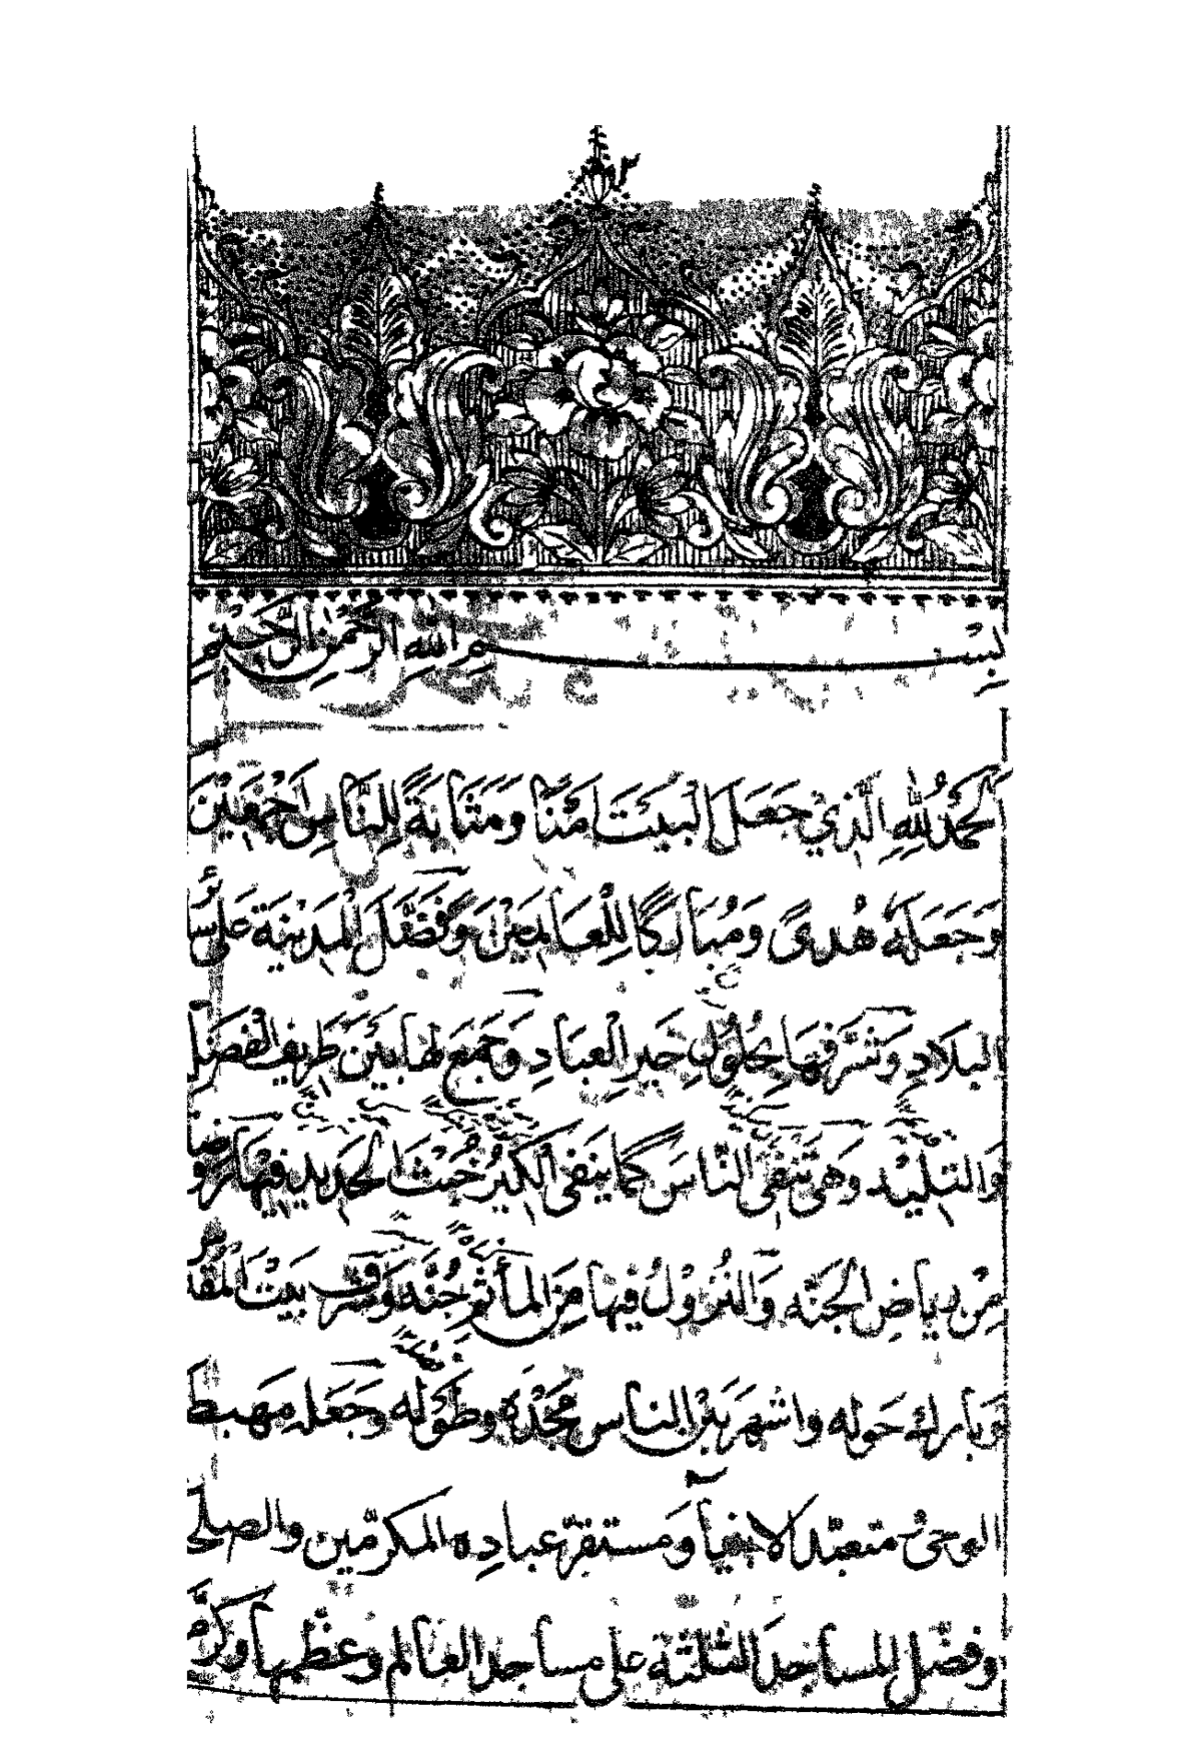 ٢
بِسْمِ اللهِ الرَّحْمٰنِ الرَّحِيْمِ
اَلْحَمْدُ لِلّٰهِ الَّذِيْ جَعَلَ الْبَيْتَ اَمْنًا وَمَثَابَةً لِلنَّاسِ اَجْمَعِيْنَ
وَجَعَلَهٗ هُدًى وَمُبَارَكًا لِلْعَالَمِيْنَ وَفَضَّلَ الْمَدِيْنَةَ عَلٰى سائر
البلادِ وَشَرَّفَهَا بِحُلُوْلِ خَيْرِ الْعِبَادِ وَجَمَعَ لها بَيْنَ طَرِيْفِ الْفَضْلِ
وَالتَّلِيْد وَهِيَ تَنْفِي النَّاسَ كَمَا يَنْفِي الْكِيْرُ خُبْثَ الْحَدِيْدِ فِيْهَا رَوْضَة
مِنْ رِيَاضِ الْجَنَّه وَالنُّزُوْلُ فِيْهَا مِنَ الْمَأْثَمِ جُنَّه وَشَرَّفَ بَيْتَ الْمَقْدس
وَبَارك حَوله واشهرَ بَيْنَ النَاس مَجْدَه وطَوْله وَجَعَله مَهبط
الوحى مُتعبّد الانبياء وَمستقرّ عبادِه المكرمين والصلحا
وفضّل المساجِدَ الثلثة على مساجد العالم وعظّمها وكرّم